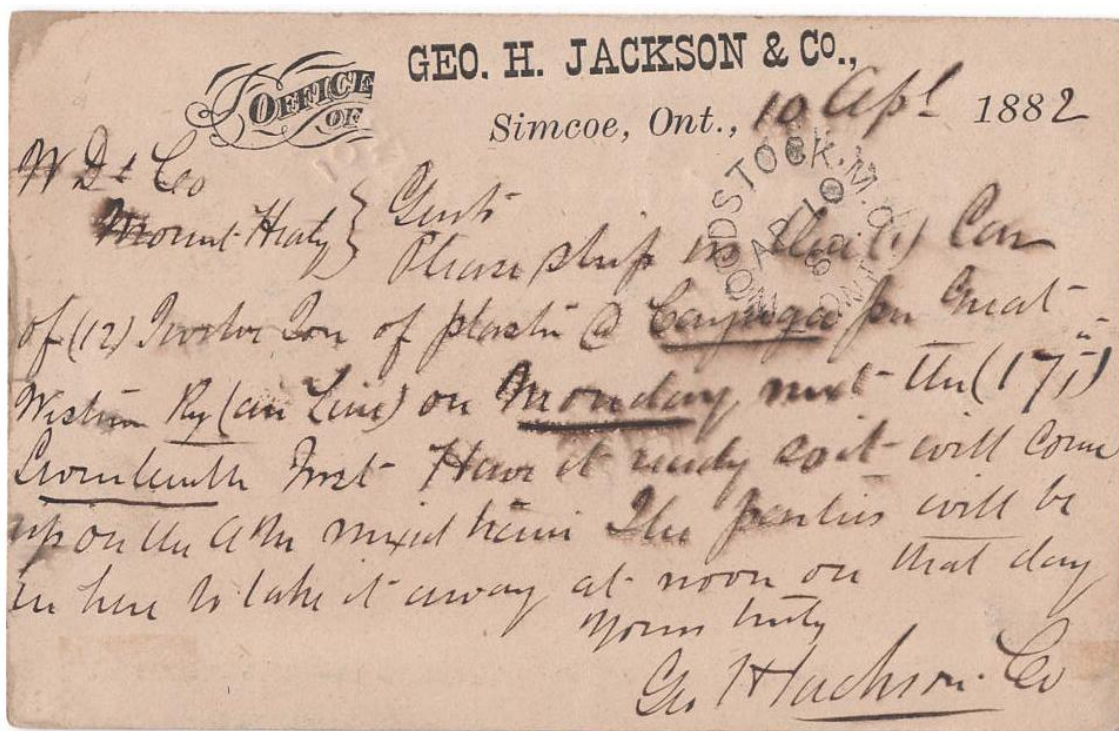 OFFICE OF
GEO. H. JACKSON & Co.,
Simcoe, Ont., 10 Apl 1882
W D & Co
Mount Healy } Gents
Please ship us Car
of (12) Twelve Ton of plaster @ Cayuga per Great
Western Ry (air Line) on Monday next the (17th)
Seventeenth Inst Have it ready so it will come
up on the a m mixed train The parties will be
in here to take it away at noon on that day
Yours truly
Geo H Jackson Co
WOODSTOCK. M.O.
AP 10
82
ONT